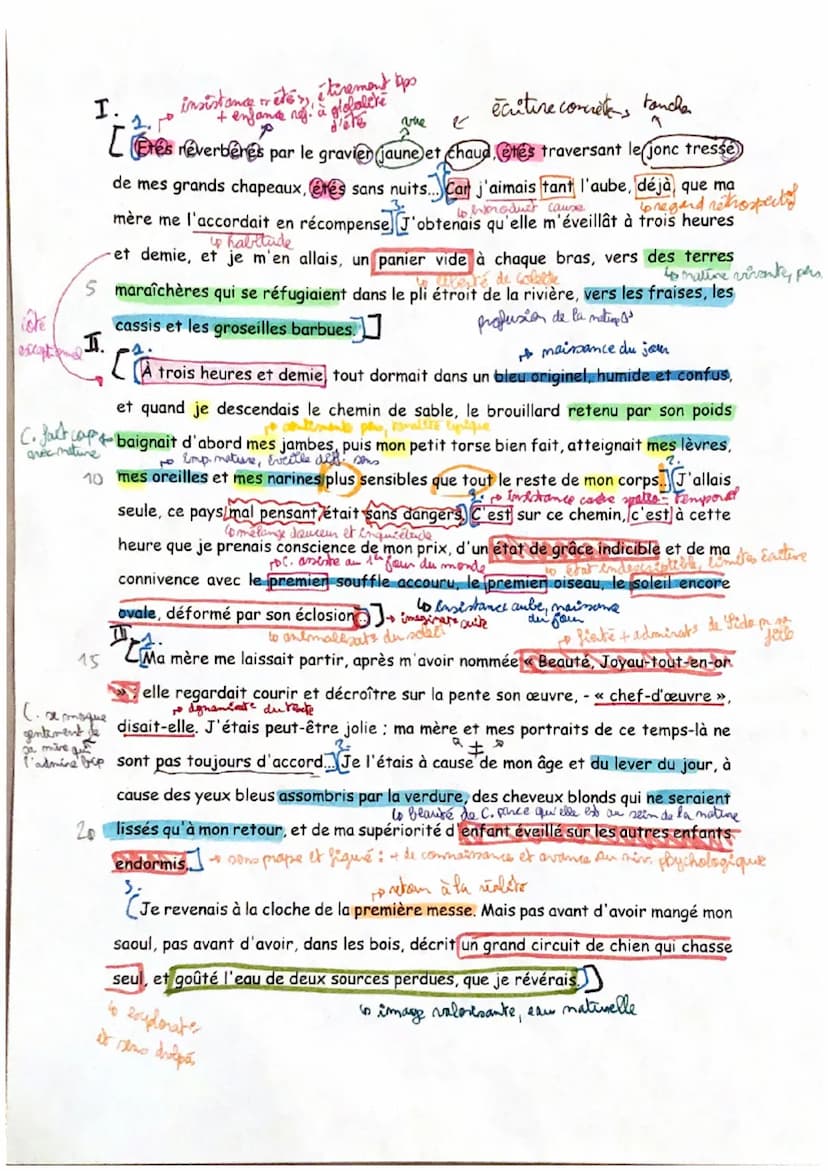 insistance « étés », étirement tps
+ enfance réf. à globalité
d'étés
I.
1.
vue
écriture concrète, toucher
Étés réverbérés par le gravier jaune et chaud, étés traversant le jonc tressé
de mes grands chapeaux, étés sans nuits... Car j'aimais tant l'aube, déjà, que ma
introduct° cause
regard rétrospectif
mère me l'accordait en récompense. J'obtenais qu'elle m'éveillât à trois heures
habitude
et demie, et je m'en allais, un panier vide à chaque bras, vers des terres
liberté de Colette
nature vivante, pers.
5
maraîchères qui se réfugiaient dans le pli étroit de la rivière, vers les fraises, les
profusion de la nature
cassis et les groseilles barbues.
côté
exceptionnel
II.
1.
naissance du jour
À trois heures et demie, tout dormait dans un bleu originel, humide et confus,
et quand je descendais le chemin de sable, le brouillard retenu par son poids
C. fait corps
avec nature
baignait d'abord mes jambes, puis mon petit torse bien fait, atteignait mes lèvres,
imp. nature, éveille diff. sens
10
mes oreilles et mes narines plus sensibles que tout le reste de mon corps... J'allais
2.
insistance cadre spatio-temporel
seule, ce pays mal pensant était sans dangers. C'est sur ce chemin, c'est à cette
mélange douceur et inquiétude
heure que je prenais conscience de mon prix, d'un état de grâce indicible et de ma
C. assiste au 1er jour du monde
état indescriptible, limites écriture
connivence avec le premier souffle accouru, le premier oiseau, le soleil encore
insistance aube, naissance
du jour
ovale, déformé par son éclosion...
imaginaire suite
animalisat° du soleil
III
1.
fierté + admirat° de Sido pr sa
fille
15
Ma mère me laissait partir, après m'avoir nommée « Beauté, Joyau-tout-en-or
» ; elle regardait courir et décroître sur la pente son œuvre, - « chef-d'œuvre »,
dynamisme du texte
C. se moque
gentiment de
sa mère qui
l'admire bcp
disait-elle. J'étais peut-être jolie ; ma mère et mes portraits de ce temps-là ne
≠
sont pas toujours d'accord... Je l'étais à cause de mon âge et du lever du jour, à
2.
cause des yeux bleus assombris par la verdure, des cheveux blonds qui ne seraient
beauté de C. parce qu'elle est au sein de la nature
20
lissés qu'à mon retour, et de ma supériorité d'enfant éveillé sur les autres enfants
endormis.
sens propre et figuré : + de connaissance et avance au niv. psychologique
3.
retour à la réalité
Je revenais à la cloche de la première messe. Mais pas avant d'avoir mangé mon
saoul, pas avant d'avoir, dans les bois, décrit un grand circuit de chien qui chasse
seul, et goûté l'eau de deux sources perdues, que je révérais.
image valorisante, eau naturelle
explorate
et sens